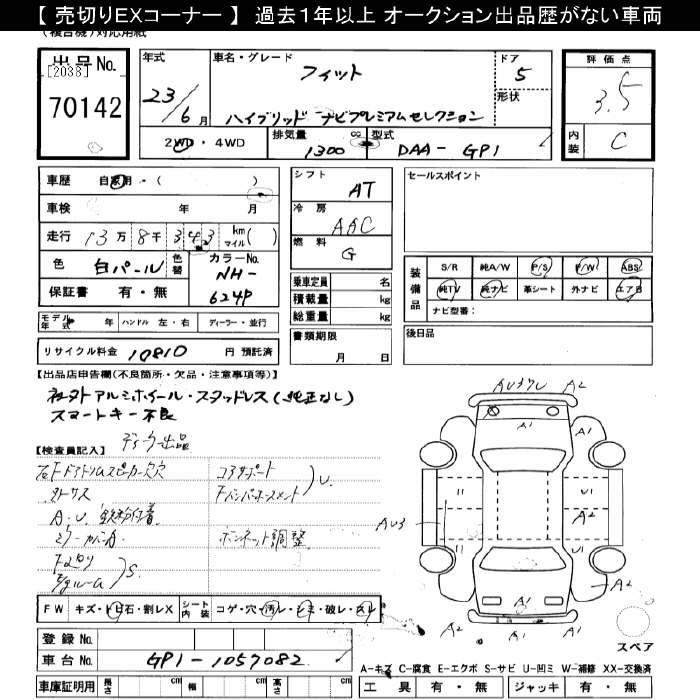 【 売切りEXコーナー 】 過去１年以上 オークション出品歴がない車両
(複合機)対応用紙
出品No.
[2038]
70142
年式
23/6月
車名・グレード
フィット
ハイブリッド ナビプレミアムセレクション
ドア
5
形状
評価点
3.5
内装
C
2WD・4WD
排気量
1300
cc
型式
DAA-GP1
車歴 自家用・( )
車検 年 月
走行 13万8千343 km マイル( )
色 白パール 色替
カラーNo.
NH-624P
保証書 有・無
モデル年式 年 ハンドル 左・右 ディーラー・並行
リサイクル料金 10810 円 預託済
シフト
AT
冷房
AAC
燃料
G
乗車定員 名
積載量 kg
総重量 kg
書類期限
月 日
セールスポイント
装備品
S/R 純A/W P/S P/W ABS
純TV 純ナビ 革シート 外ナビ エアB
ナビ型番：
後日品
【出品店申告欄(不良箇所・欠品・注意事項等)】
社外アルミホイール・スタッドレス(純正なし)
スマートキー不良
【検査員記入】
ディーラー出品
コアサポート
U
A.U. 鉄粉付着
ボンネット調整
S
FW キズ・トビ石・割レX
シート内装 コゲ・穴・汚レ・シミ・破レ・スレ
登録No.
車台No. GP1-1057082
車庫証明用 長さ cm 幅 cm 高さ cm
AU3
A2
A1
A1
U1
A2
AU3
U1
A2
A1
A2
A1
A1
スペア
A－キズ C－腐食 E－エクボ S－サビ U－凹ミ W－補修 XX－交換済
工具 有・無 ジャッキ 有・無